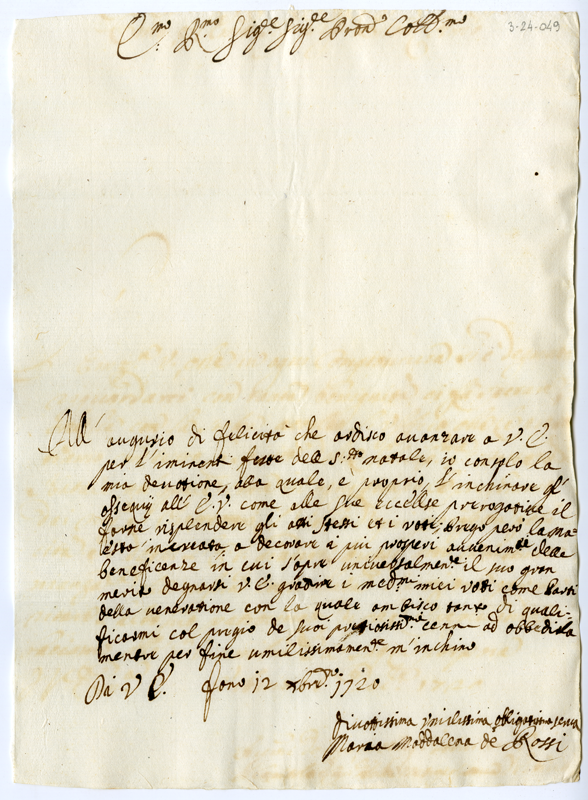 E.mo R.mo Sig.e Sig.e Pron.e Coll.mo
3-24-049
All' augurio di felicità che ardisco avanzare a V. E.
per l'iminenti feste dell S.mo natale, io consolo la
mia devotione, alla quale, e proprio, l'inchinare gl'
ossequij all' E. V. come alle sue eccelse prerogative il
farne risplendere gli atti stessi et i voti Prego però la Ma-
està increata a decorare i più prosperi avvenim.ti delle
beneficenze in cui sopra universalmen.te il suo gran
merito degnarsi V. E. gradire i med.mi miei voti come Parti
della veneratione con la quale ambisco tanto di quali-
ficarmi col pregio de suoi pretiosissi.mi cenni ad obbedirla
mentre per fine umilissimamen.te m'inchino
Di V. E. Fano 12 Xbre 1720
Divottissima Umilissima obligatissima serva
Maria Maddalena de Rossi